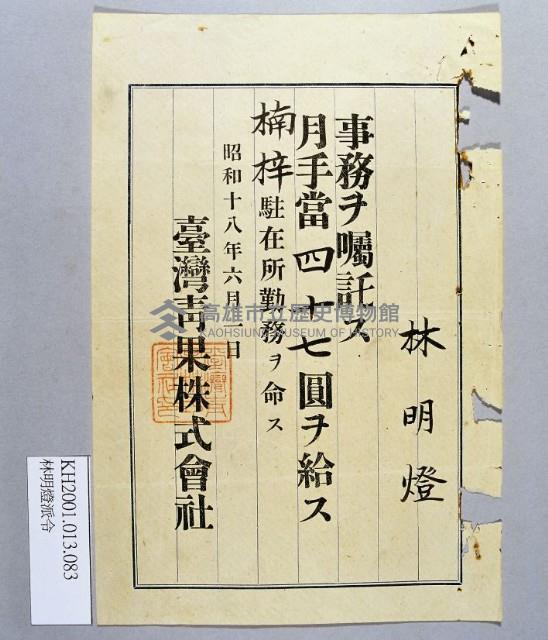 林明燈
事務ヲ囑託ス
月手當四十七圓ヲ給ス
楠梓駐在所勤務ヲ命ス
昭和十八年六月 日
臺灣青果株式會社
高雄市立歷史博物館
KAOHSIUNG MUSEUM OF HISTORY
KH2001.013.083
林明燈派令